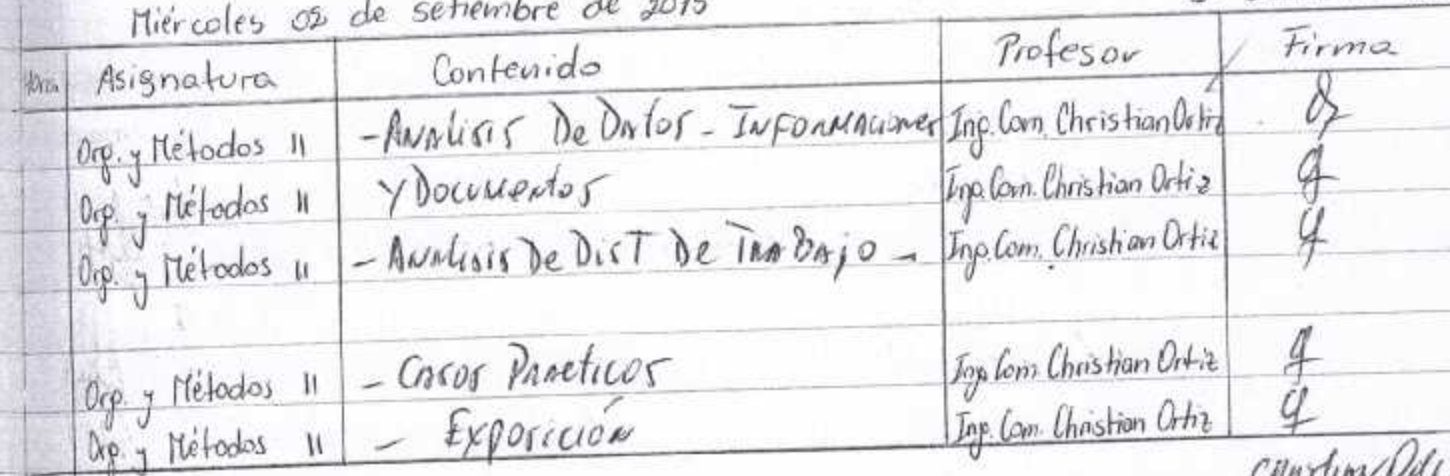 Miércoles 02 de setiembre de 2015
Hora Asignatura Contenido Profesor Firma
Org. y Métodos II - Analisis De Datos - Informaciones Ing. Com. Christian Ortiz
Org. y Métodos II y Documentos Ing. Com. Christian Ortiz
Org. y Métodos II - Analisis De Dist De Trabajo - Ing. Com. Christian Ortiz
Org. y Métodos II - Casos Practicos Ing. Com. Christian Ortiz
Org. y Métodos II - Exposición Ing. Com. Christian Ortiz